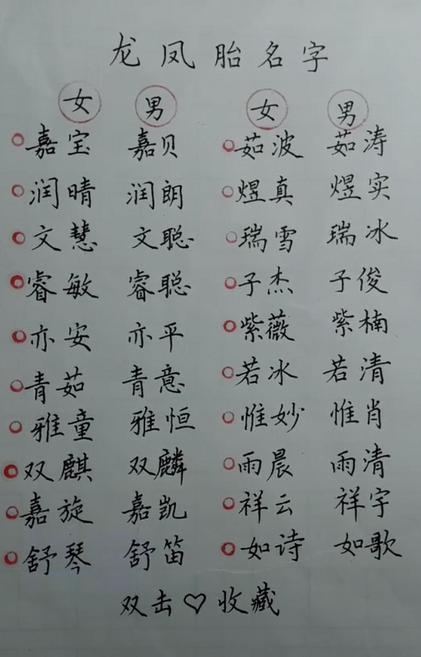 龙凤胎名字
女 男 女 男
嘉宝 嘉贝 茹波 茹涛
润晴 润朗 煜真 煜实
文慧 文聪 瑞雪 瑞冰
睿敏 睿聪 子杰 子俊
亦安 亦平 紫薇 紫楠
青茹 青意 若冰 若清
雅童 雅恒 惟妙 惟肖
双麒 双麟 雨晨 雨清
嘉旋 嘉凯 祥云 祥宇
舒琴 舒笛 如诗 如歌
双击♡收藏